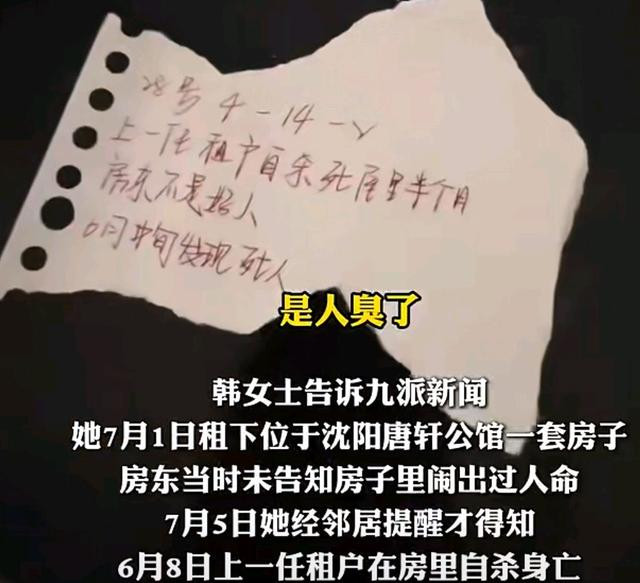 28号 4-14-
上一任租户自杀死屋里半个月
房东不是好人
6月中旬发现死人
是人臭了
韩女士告诉九派新闻
她7月1日租下位于沈阳唐轩公馆一套房子
房东当时未告知房子里闹出过人命
7月5日她经邻居提醒才得知
6月8日上一任租户在房里自杀身亡